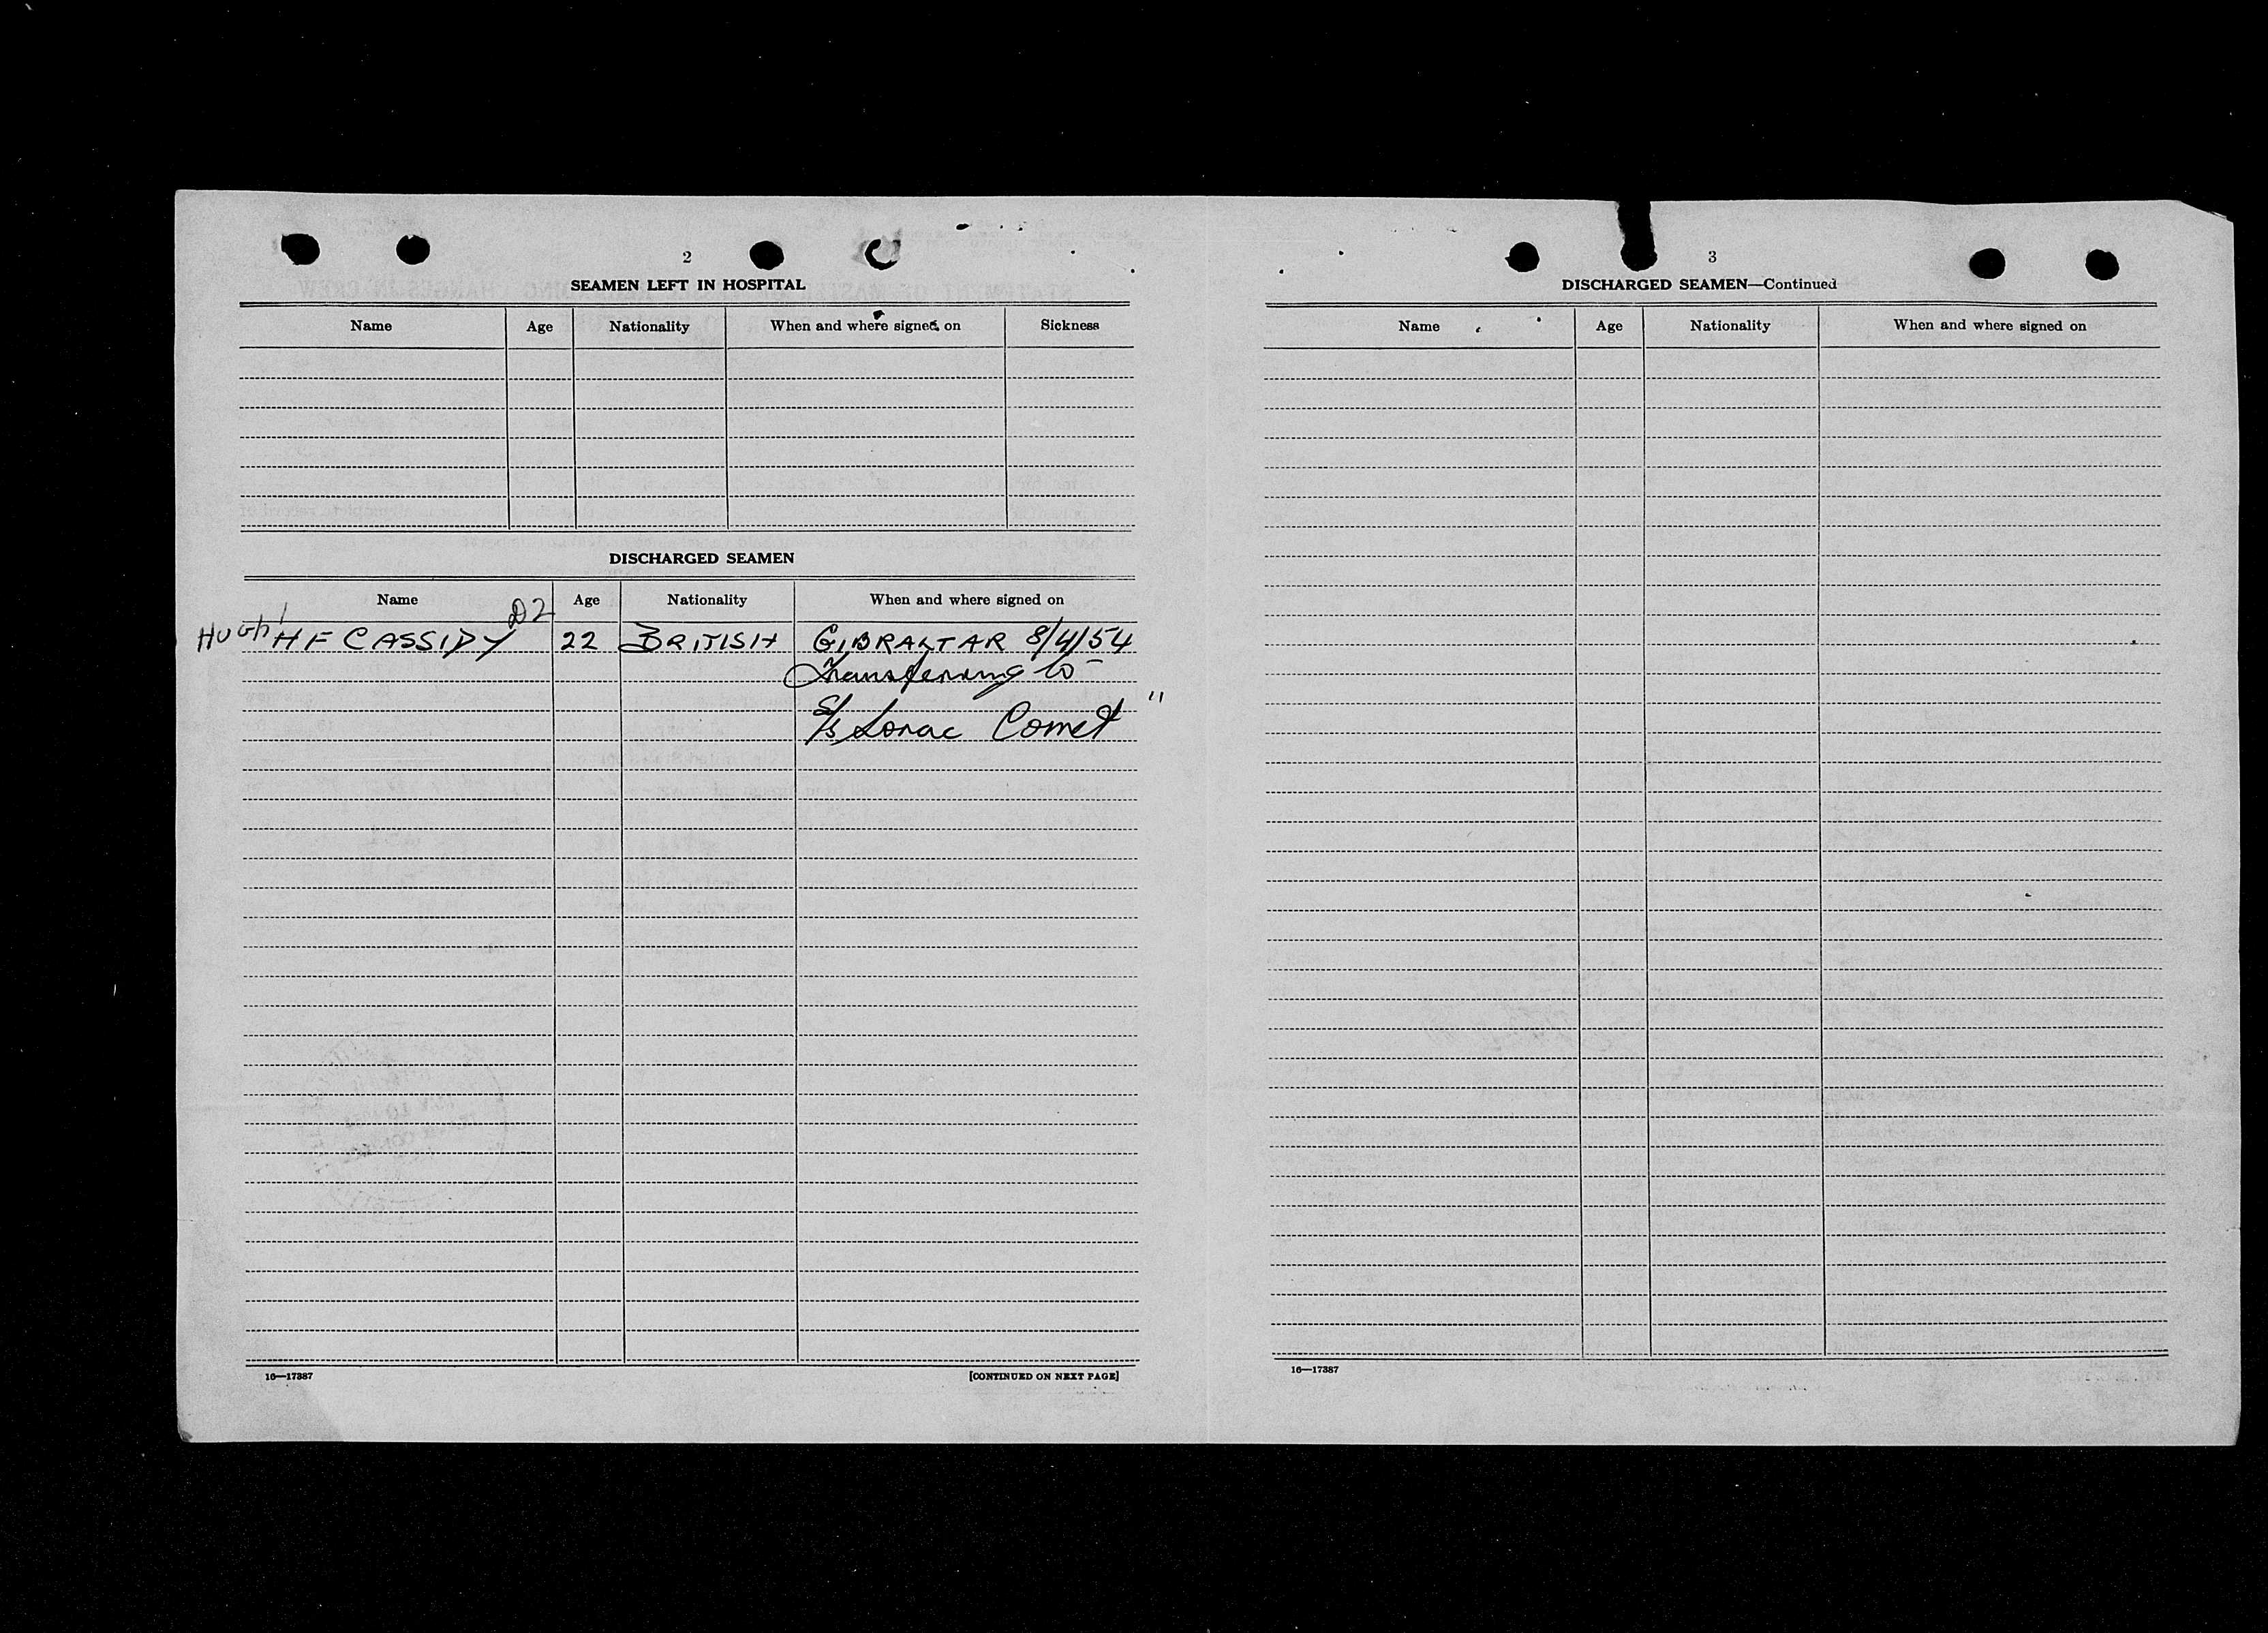 2
SEAMEN LEFT IN HOSPITAL
Name Age Nationality When and where signed on Sickness
DISCHARGED SEAMEN
Name Age Nationality When and where signed on
D2
Hugh H F CASSIDY 22 BRITISH GIBRALTAR 8/4/54
Transferring to
S/S Lorac Comet "
16—17387 [CONTINUED ON NEXT PAGE]
3
DISCHARGED SEAMEN—Continued
Name Age Nationality When and where signed on
16—17387